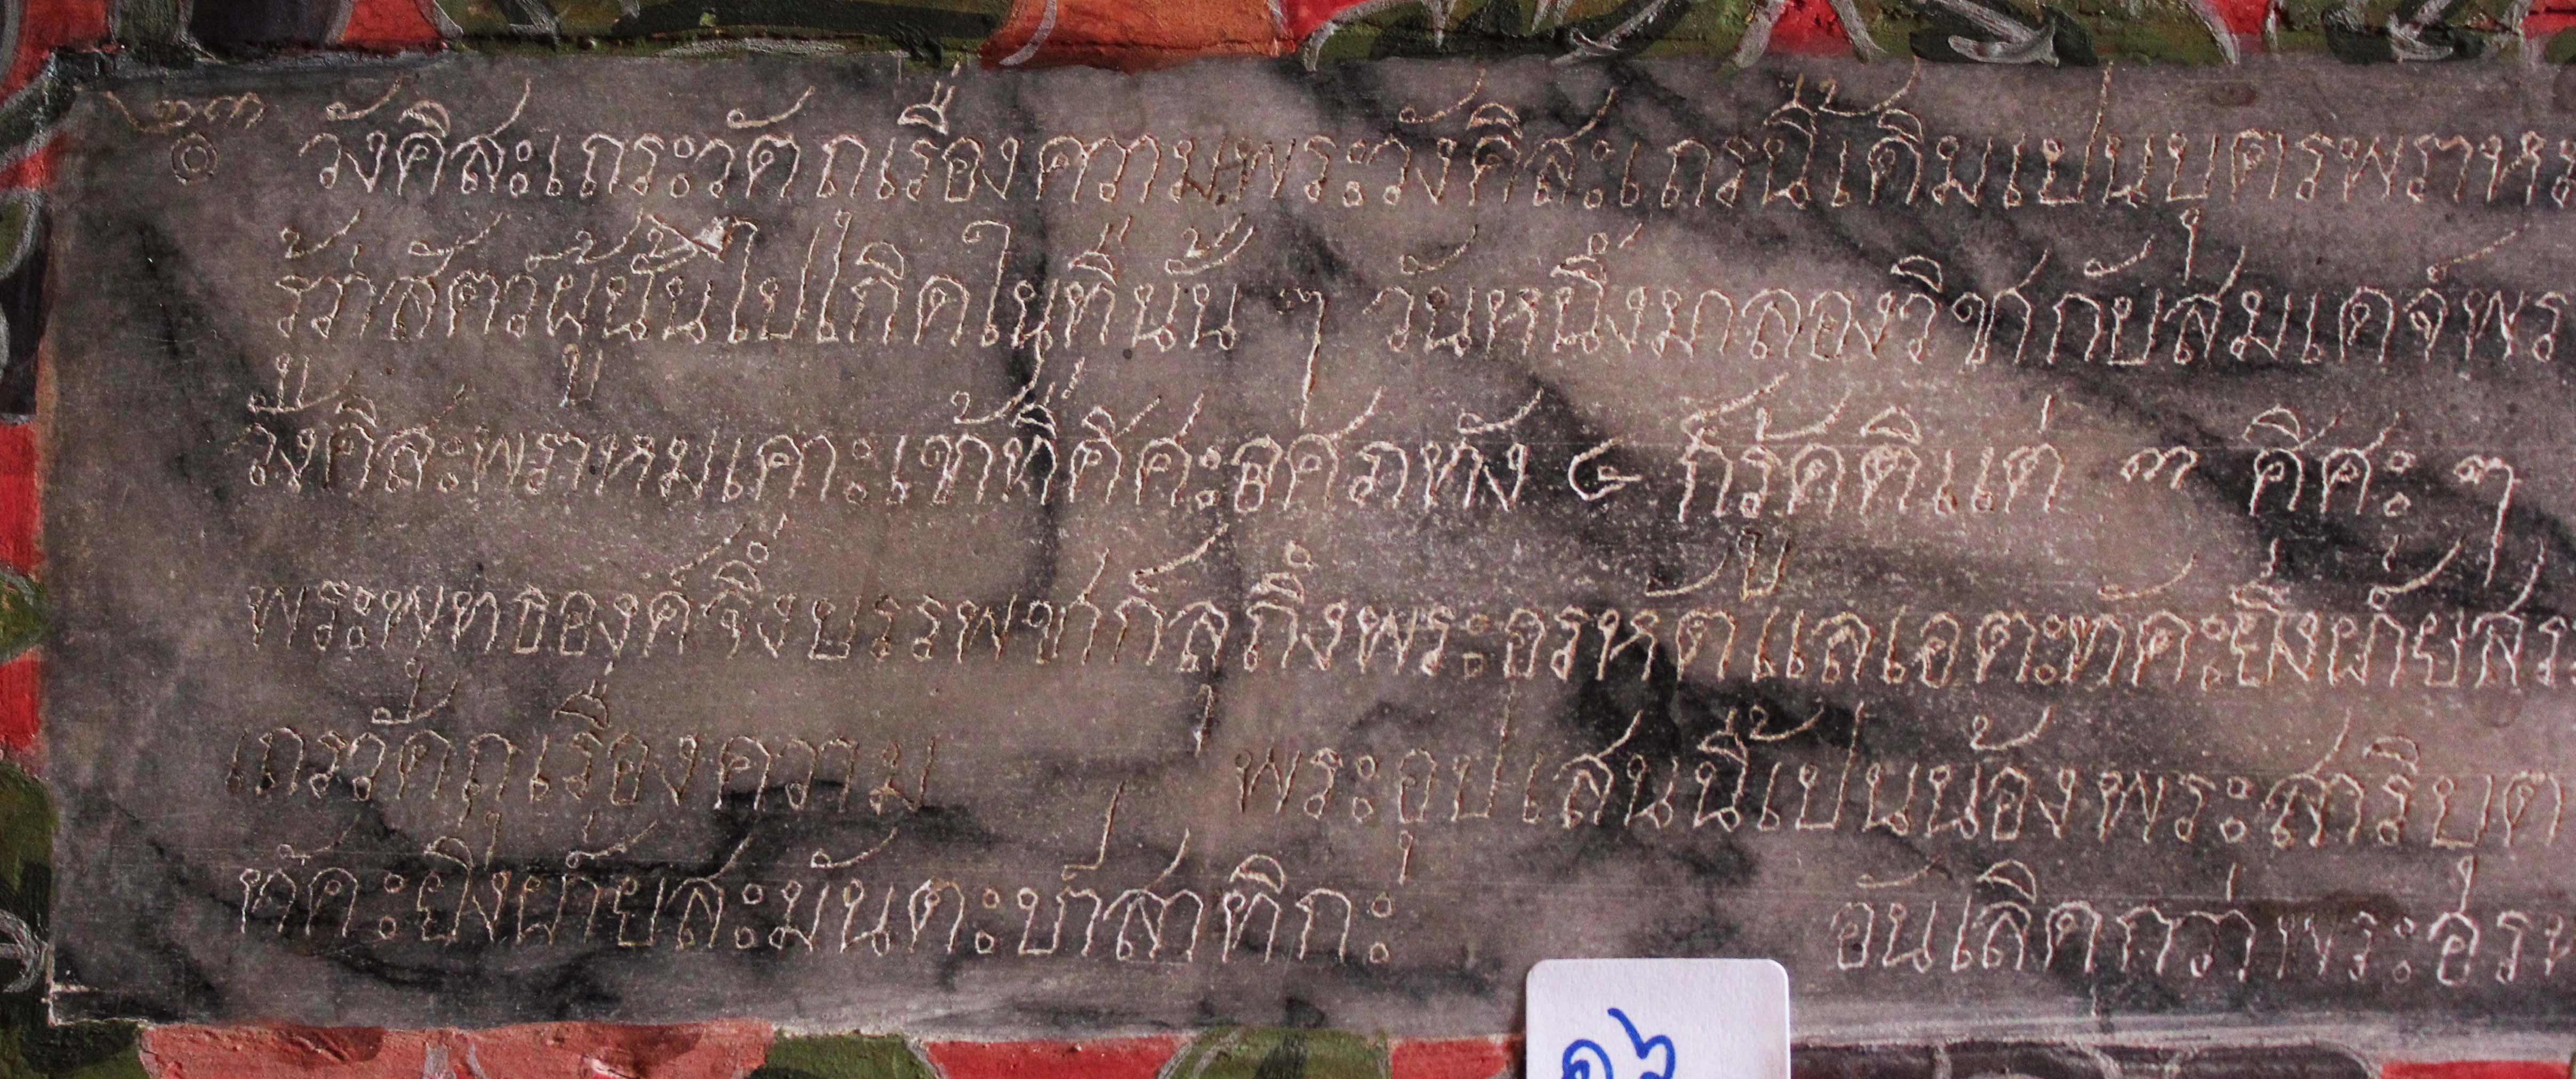 ๒๓
๏ วังคิสะเถระวัตถุเรื่องความพระวังคิสะเถรนี้เดิมเปนบุตรพราหม
รู้ว่าสัตว์ผู้นั้นไปเกิดในที่นั้น ๆ วันหนึ่งมาลองวิชากับสมเดจ์พร
วังคิสะพราหมเคาะเข้าที่ศีศะอศภทัง ๔ ก็รู้คติแต่ ๓ ศีศะ ๆ
พระพุทธองค์จึ่งบรรพชาก็ลุถึงพระอรหัตแลเอตะทัคะยิ่งฝ่าย
เถรวัตถุเรื่องความ พระอุปเสนนี้เปนน้องพระสาริบุต
ทัคะยิ่งฝ่ายสะมันตะปาสาทิกะ อันเลิดกว่าพระอร
๑๖